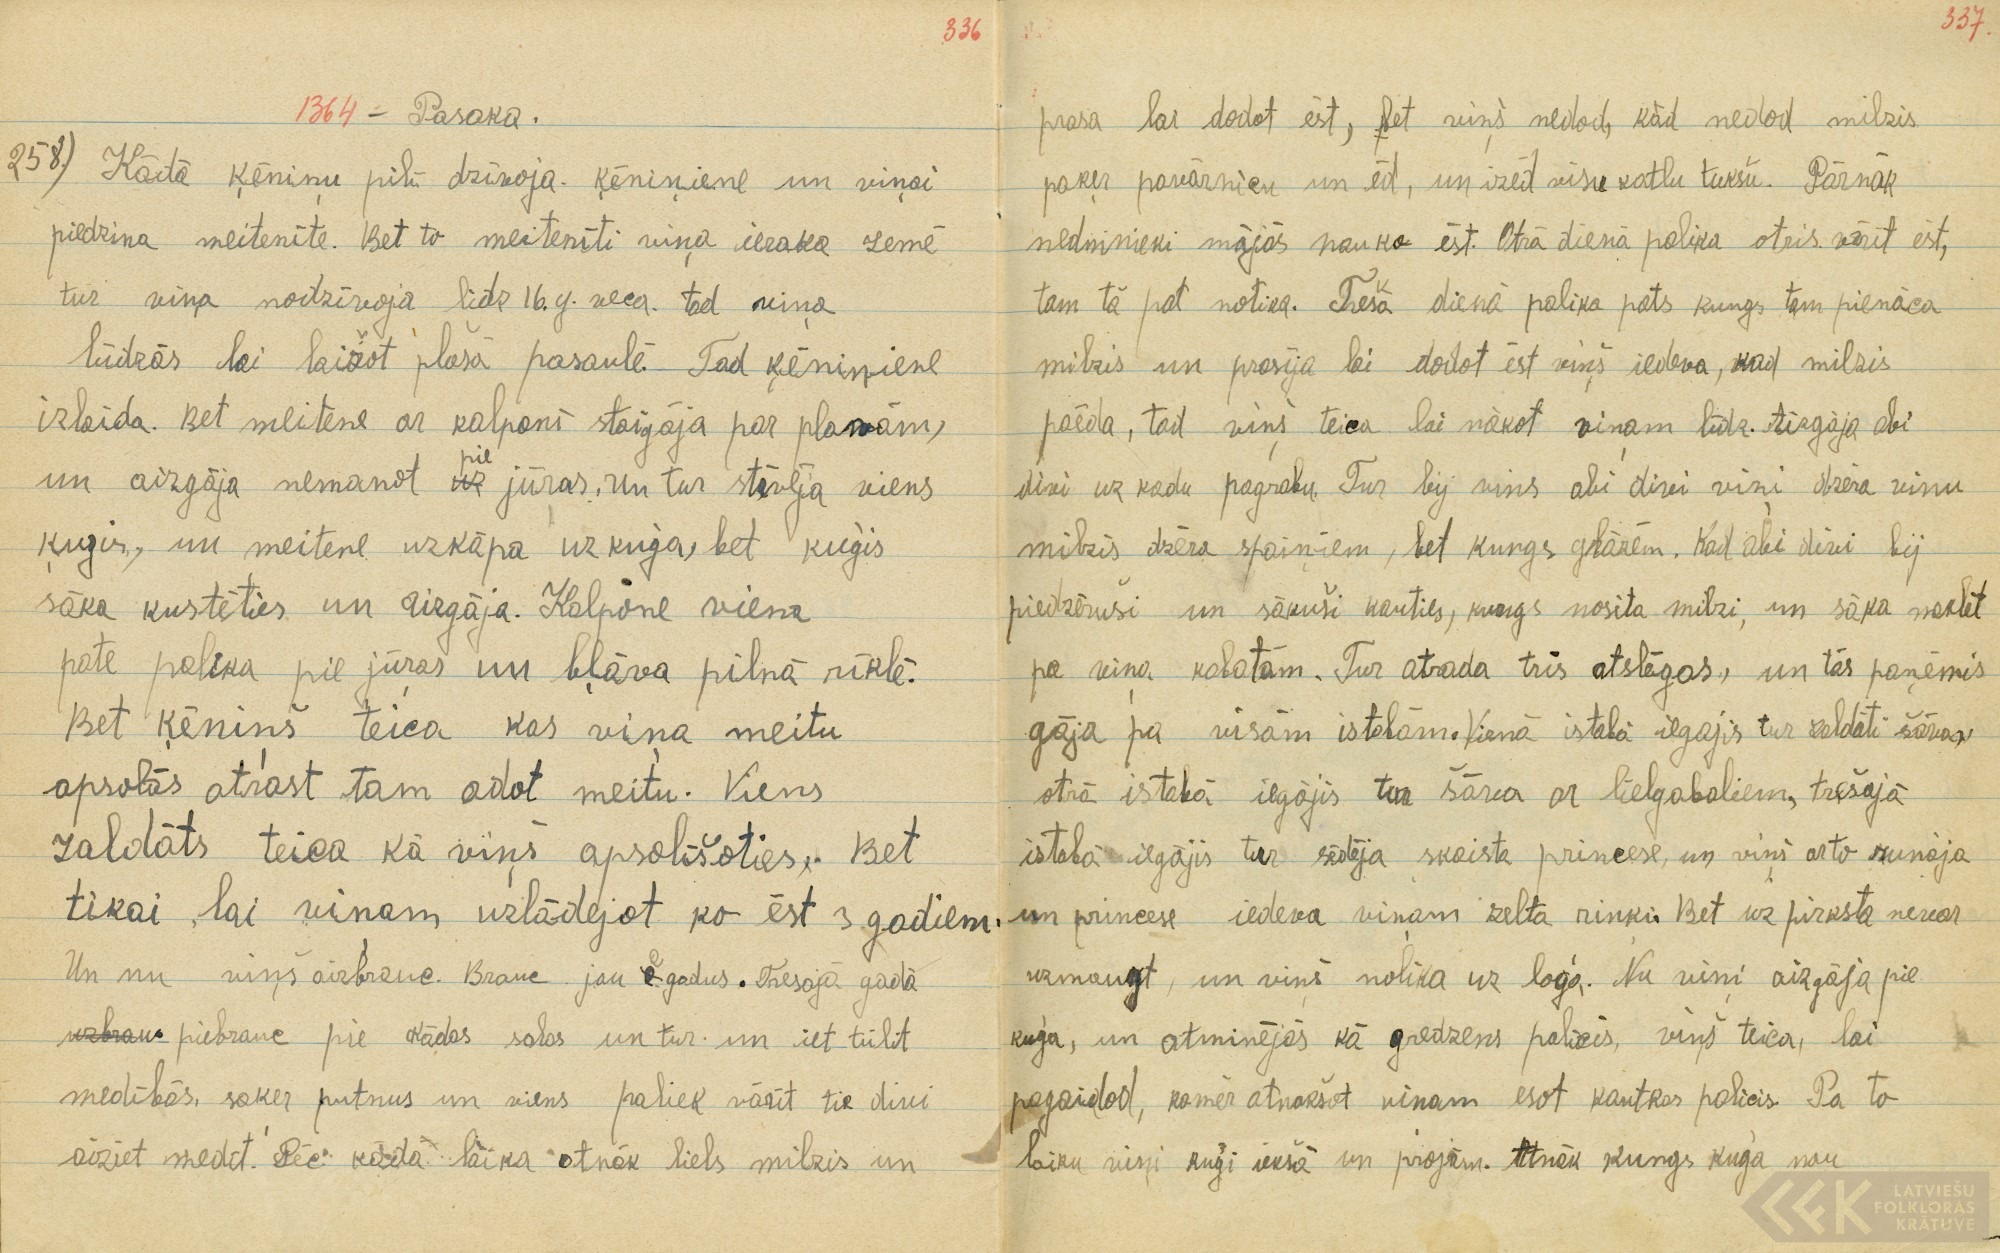 336
1364 - Pasaka.
258.) Kādā ķēniņu pilī dzīvoja. ķēniņiene un viņai
piedzina meitenīte. Bet to meitenīti viņa ieraka zemē
tur viņa nodzīvoja līdz 16. g. veca. tad viņa
lūdzās lai laižot plašā pasaulē. Tad ķēniņiene
izlaida. Bet meitene ar kalponi staigāja par pļavām,
un aizgāja nemanot uz pie jūras. Un tur stāvēja viens
kuģis, un meitene uzkāpa uz kuģa, bet kuģis
sāka kustēties un aizgāja. Kalpone viena
pate palika pie jūras un bļāva pilnā rīklē.
Bet ķēniņš teica kas viņa meitu
apsolās atrast tam adot meitu. Viens
zaldāts teica kā viņš apsolīšoties. Bet
tikai, lai viņam uzlādējot ko ēst 3 gadiem.
Un nu viņš aizbrauc. Brauc jau 2 gadus. Trešajā gadā
uzbrauc piebrauc pie kādas salas un tur. un iet tūlīt
medībās, saķer putnus un viens paliek vārīt tie divi
aiziet medīt. Pēc kāda laika atnāk liels milzis un
337.
prasa lai dodot ēst, bet viņš nedod, kād nedod milzis
paķer pavārnicu un ēd, un izēd visu katlu tukšu. Pārnāk
mednieki mājās nau ko ēst. Otrā dienā palika otris vārīt ēst,
tam tā pat notika. Trešā dienā palika pats kungs tam pienāca
milzis un prasīja lai dodot ēst viņš iedeva, kad milzis
paēda, tad viņš teica lai nākot viņam līdz. Aizgāja abi
divi uz kadu pagrabu. Tur bij vīns abi divi viņi dzēra vīnu
milzis dzēra spaiņiem, bet kungs glāzēm. Kad abi divi bij
piedzēruši un sākuši kauties, kungs nosita milzi, un sāka meklēt
pa viņa kabatām. Tur atrada trīs atslēgas, un tās paņēmis
gāja pa visām istabām. Vienā istabā iegājis tur zaldāti šāvas
otrā istabā iegājis tur šāva ar lielgabaliem, trešajā
istabā iegājis tur sēdēja skaista princese, un viņš arto runāja
un princese iedeva viņam zelta riņķi. Bet uz pirksta nevar
uzmaugt, un viņš nolika uz loga. Nu viņi aizgāja pie
kuģa, un atminējās kā gredzens palicis, viņš teica, lai
pagaidod, kamēr atnākšot viņam esot kautkas palicis. Pa to
laiku viņi kuģī iekšā un projām. Atnāk kungs kuģa nau
LATVIEŠU
FOLKLORAS
KRĀTUVE